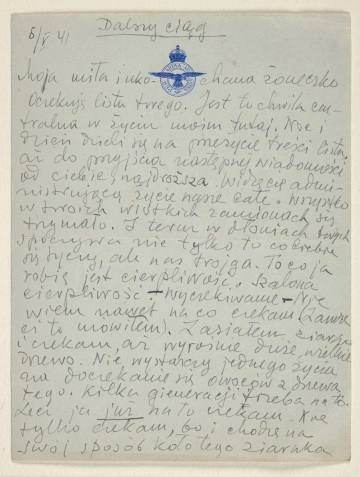 Dalszy ciąg
5/V 41
Moja miła i uko- chana żoneczko
Oczekuję listu twego. Jest to chwila cen-
tralna w życiu moim tutaj. Noc i
dzień dzieli się na przeżycie treści listu
aż do przyjścia następnej wiadomości
od ciebie najdroższa. Większą admi-
nistrującą życie nasze całe. Wszystko
w twoich wiotkich ramionach się
trzymało. I teraz w dłoniach twych
spoczywa nie tylko to co
ale nas troje. To co ja
robię jest cierpliwość. Szalona
cierpliwość - wyczekiwanie - Nie
wiem nawet na co czekam (zawsze
ci to mówiłem). Zasiałem ziarno
i czekam, aż wyrośnie duże, wielkie
drzewo. Nie wystarczy jednego życia
na doczekanie się owoców z drzewa
tego. Kilka generacji trzeba na to.
Lecz ja już na to czekam. I nie
tylko czekam, bo i chodzę na
swój sposób koło tego ziarnka